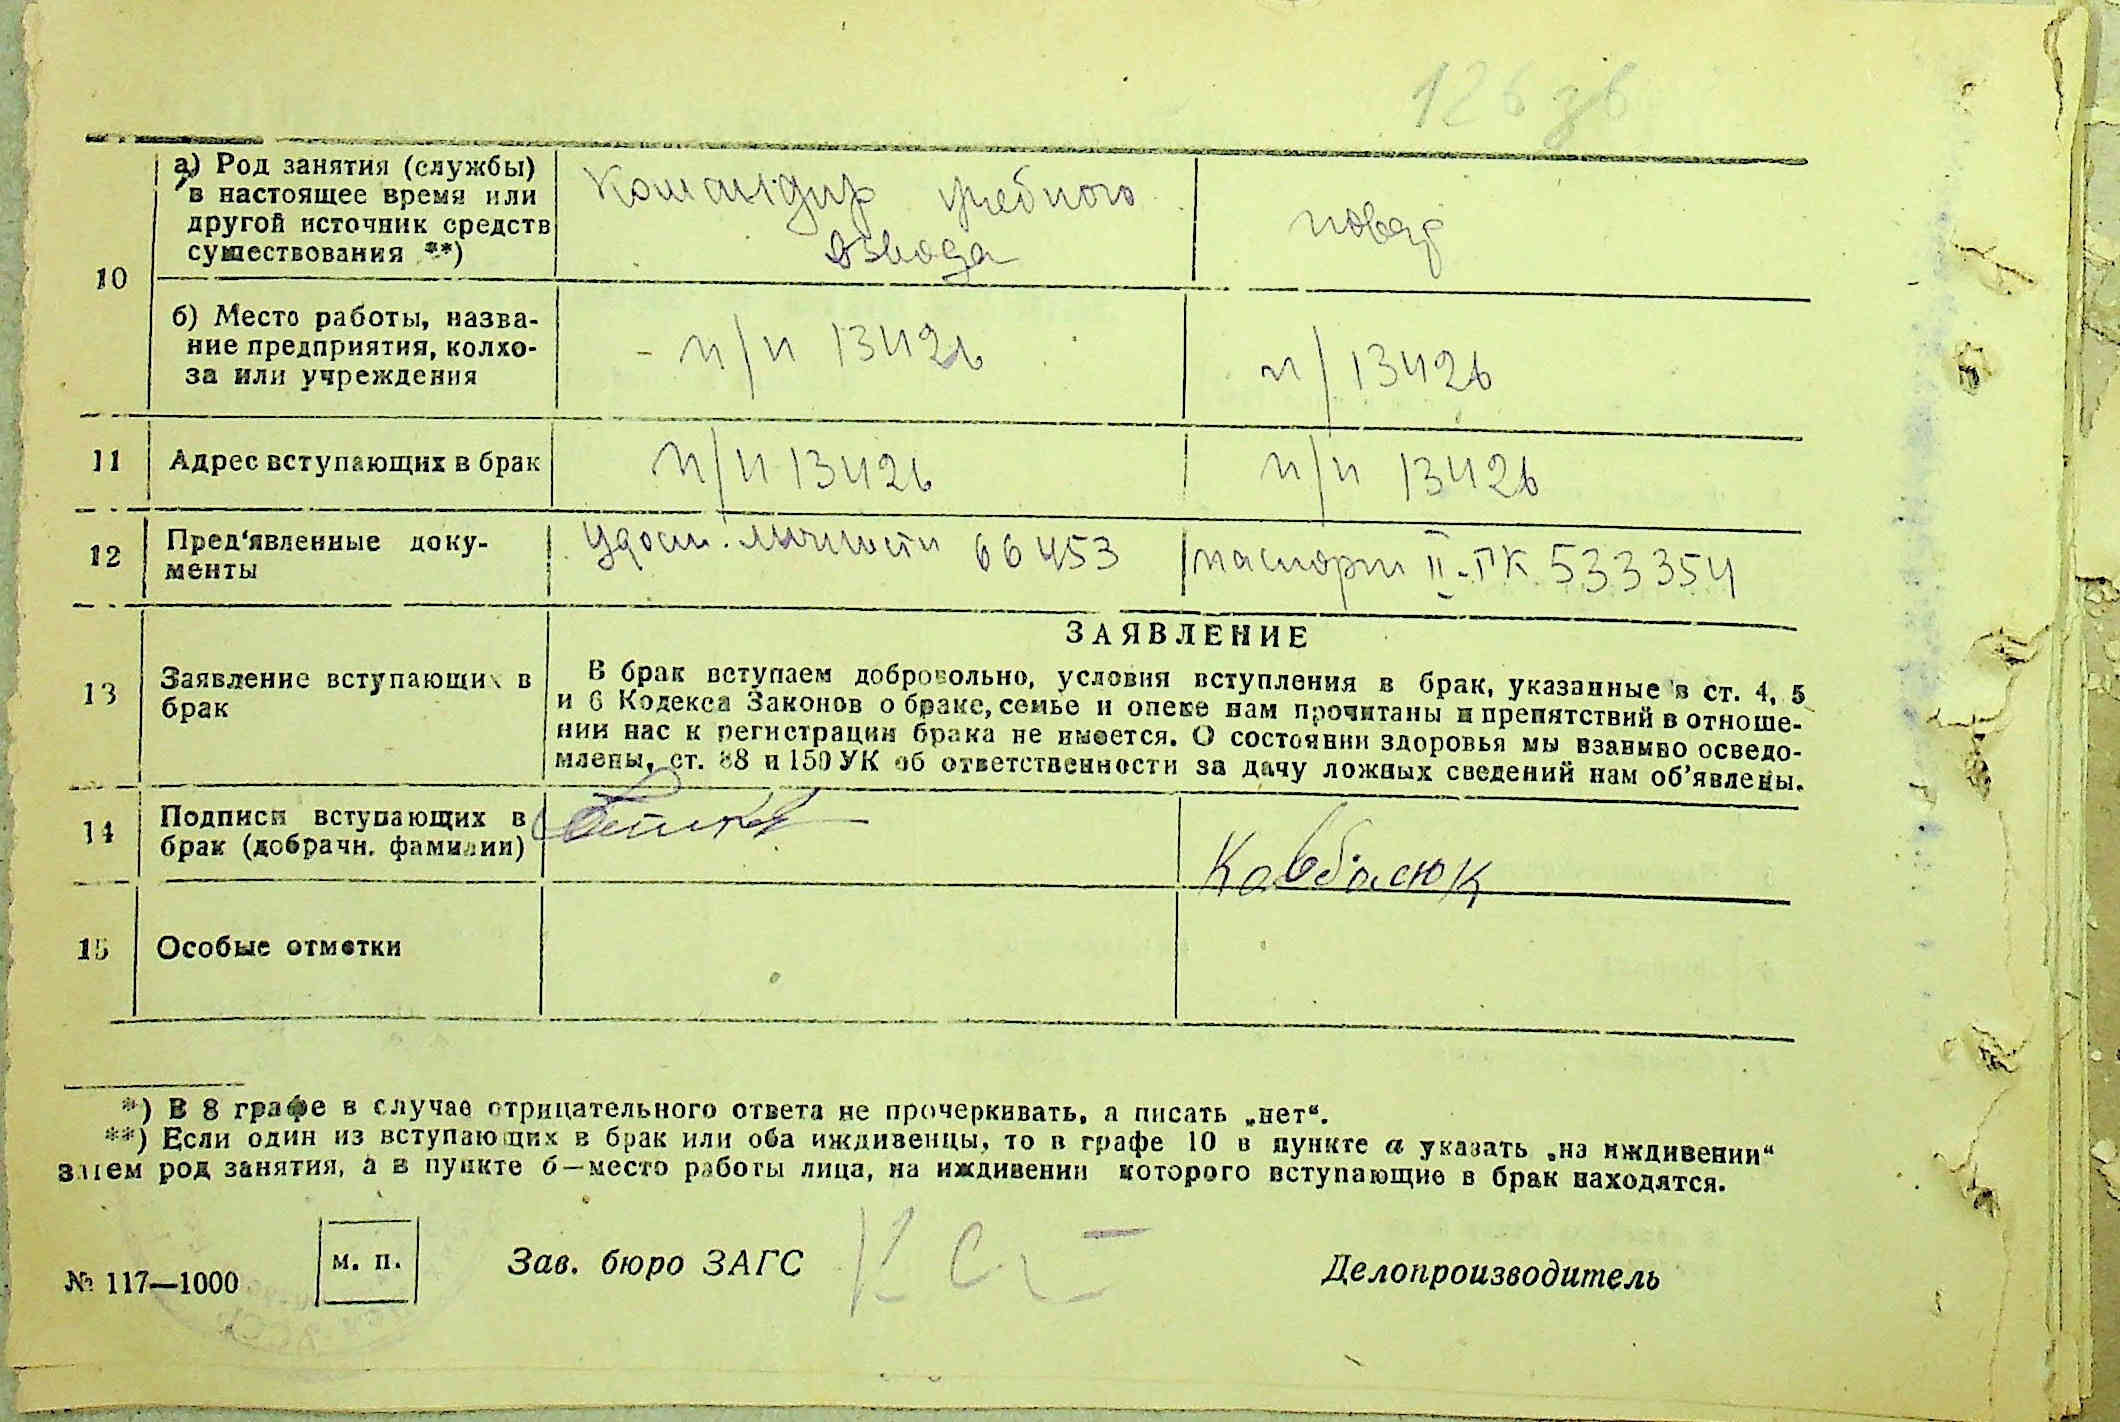 126 зв
а) Род занятия (службы)
в настоящее время или
другой источник средств
существования **)
командир учебного
взвода
повар
10
б) Место работы, назва-
ние предприятия, колхо-
за или учреждения
п/п 13426
п/ 13426
11
Адрес вступающих в брак
п/п 13426
п/п 13426
12
Пред'явленные доку-
менты
удост. личности 66453
паспорт II-ПК 533354
13
Заявление вступающих в
брак
ЗАЯВЛЕНИЕ
В брак вступаем добровольно, условия вступления в брак, указанные в ст. 4, 5
и 6 Кодекса Законов о браке, семье и опеке нам прочитаны и препятствий в отноше-
нии нас к регистрации брака не имеется. О состоянии здоровья мы взаимно осведо-
млены, ст. 88 и 150 УК об ответственности за дачу ложных сведений нам об'явлены.
14
Подписи вступающих в
брак (добрачн. фамилии)
Ковбасюк
15
Особые отметки
*) В 8 графе в случае отрицательного ответа не прочеркивать, а писать „нет“.
**) Если один из вступающих в брак или оба иждивенцы, то в графе 10 в пункте а указать „на иждивении“
затем род занятия, а в пункте б—место работы лица, на иждивении которого вступающие в брак находятся.
№ 117—1000
м. п.
Зав. бюро ЗАГС
Делопроизводитель